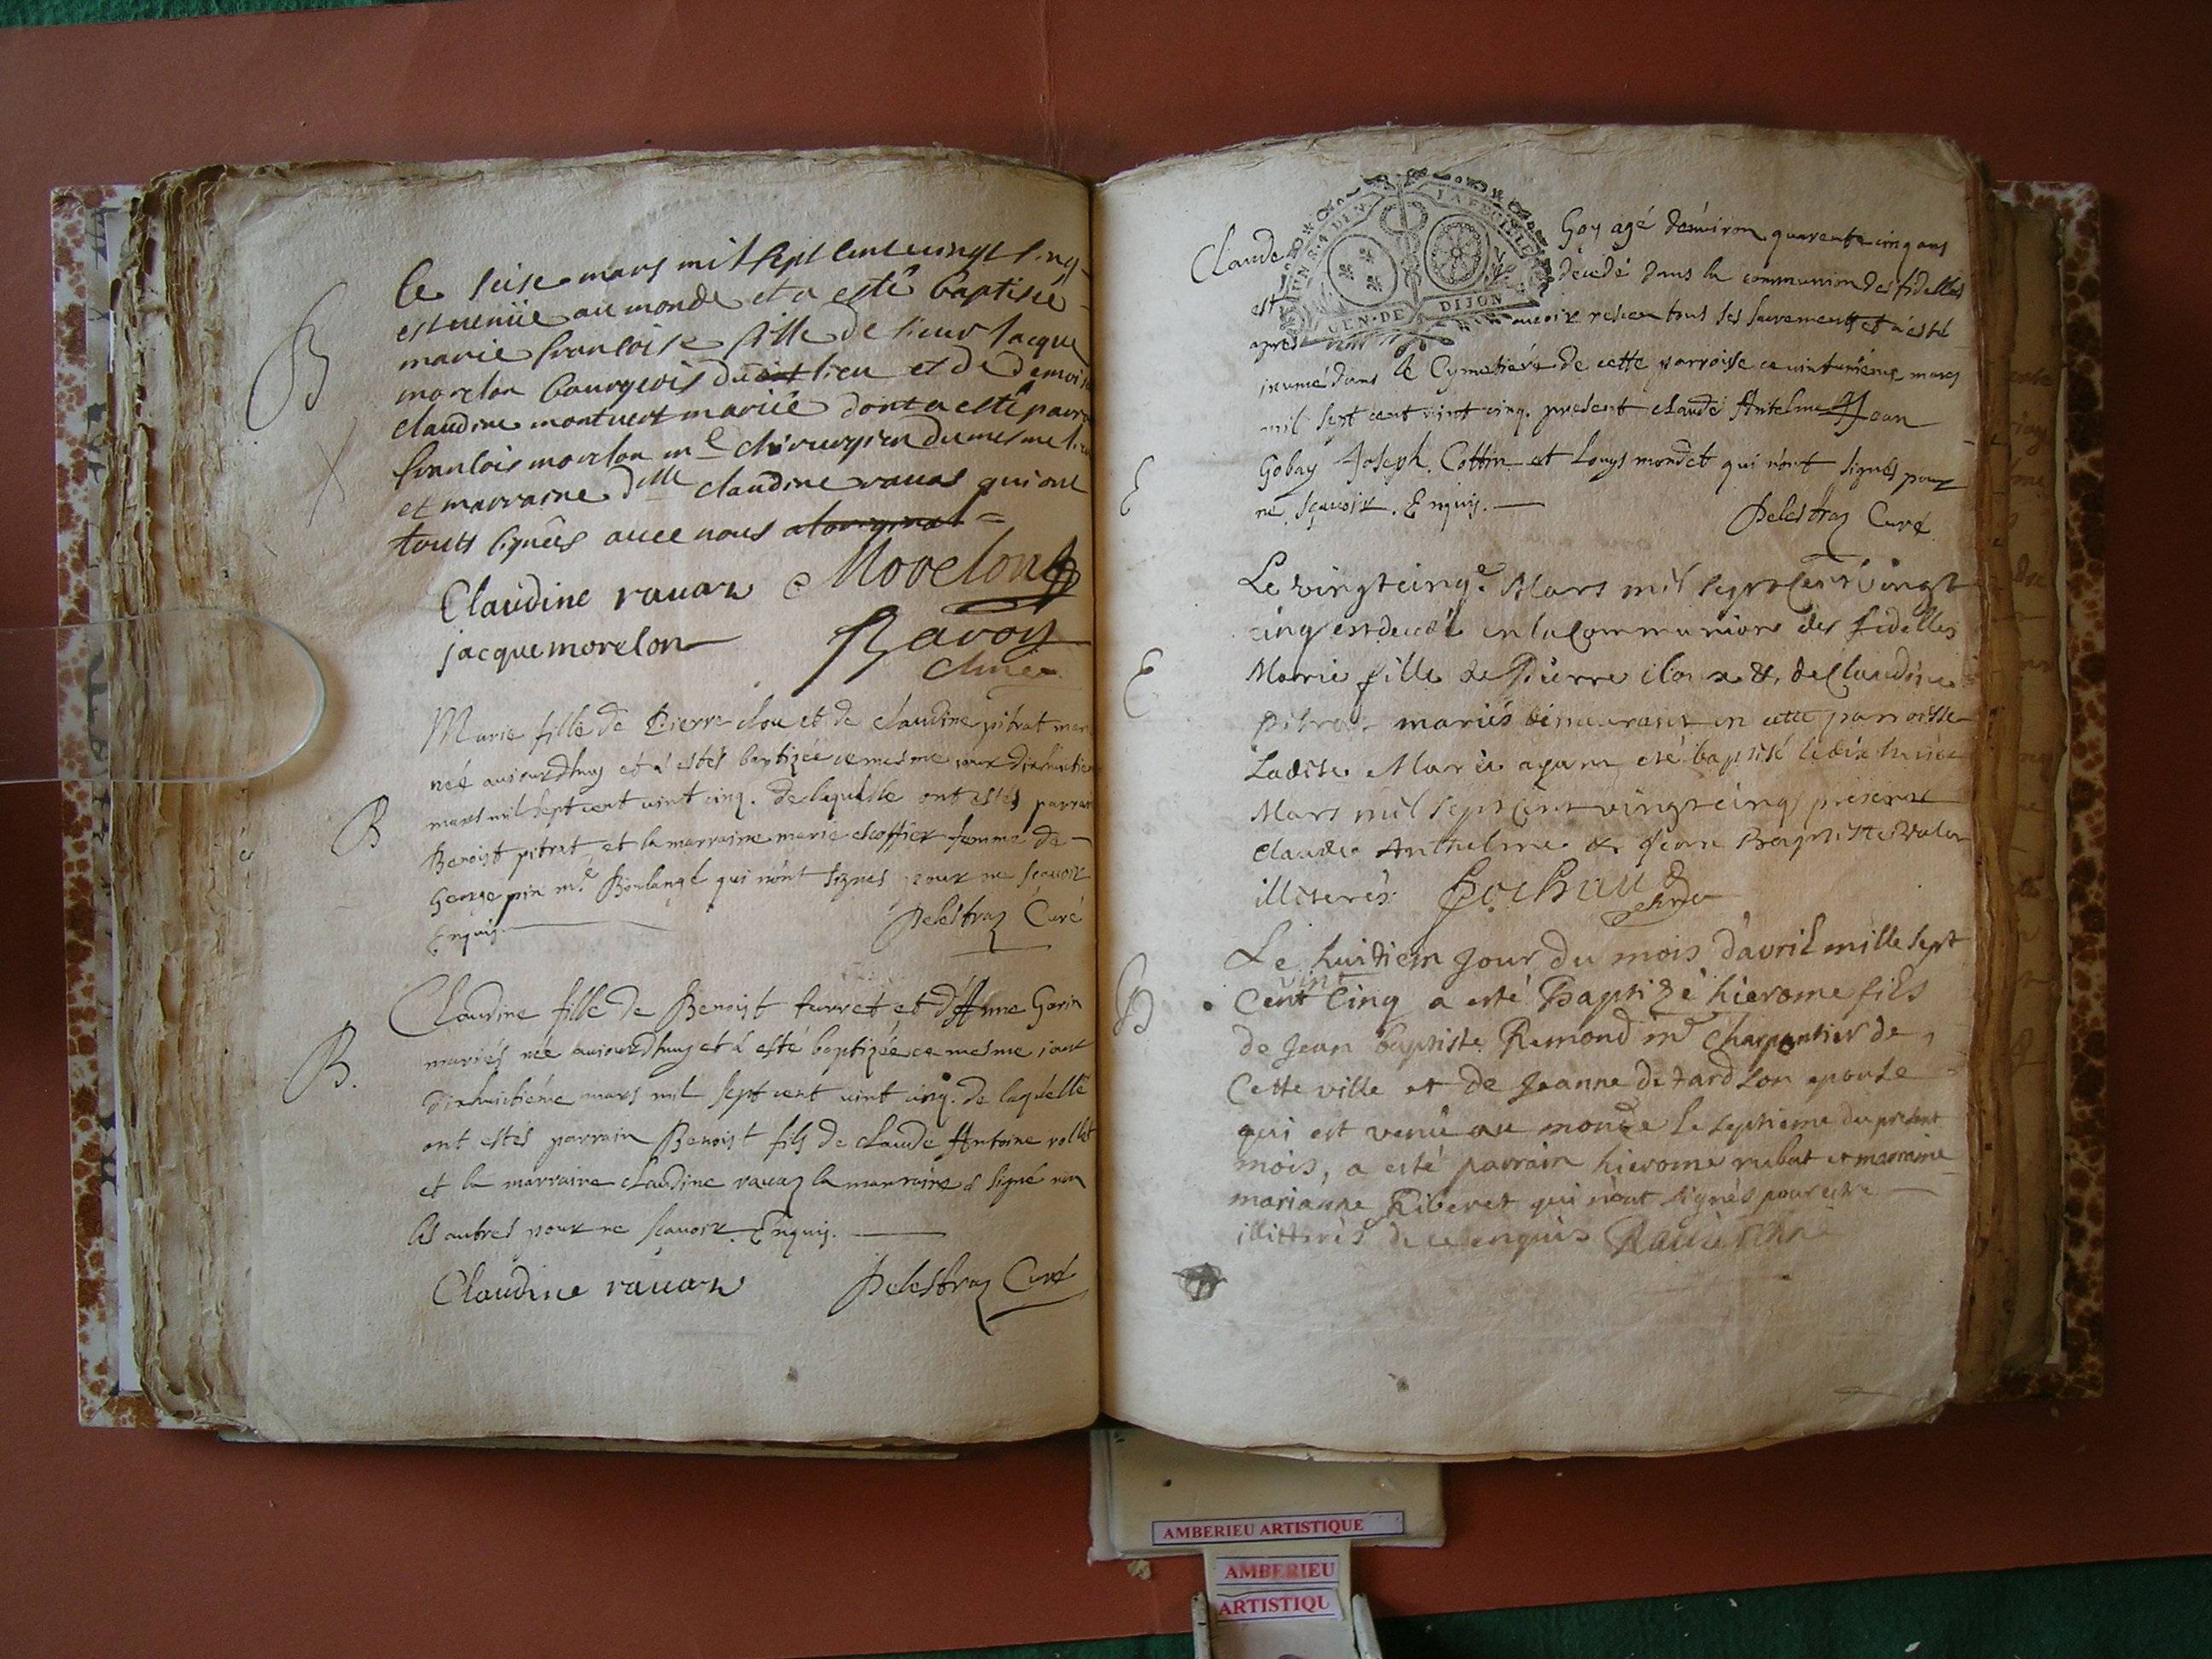 B
Le seise mars mil sept cent vingt cinq
est venüe au monde et a esté baptisée
marie francoise fille de sieur Jacque
morelon bourgeois du lieu et de demois
claudine montuert mariée dont a esté parra
francois morelon me chirurgien du mesme lieu
et marraine dlle claudine rauas qui ont
touts signées avec nous
Claudine rauaz Morelon
jacque morelon Ravoy
B
Marie fille de Pierre clou et de claudine pitrat mar
neé aujourdhuy et á estés baptizée ce mesme jour dixhuictie
mars mil sept cent vint cinq. de laquelle ont estés parrain
Benoist pitrat et la marraine marie escoffier femme de
George pin me Boulangé qui n'ont signes pour ne scavoir
Enquis. Delestraz Curé
B.
Claudine fille de Benoist furret et d'Anne Gorin
mariés née aujourdhuy et á esté baptizée ce mesme jour
dixhuictiéme mars mil sept cent vint cinq. de laquelle
ont estés parrain Benoist fils de claude Antoine rollet
et la marraine claudine rauaz la marraine á signé non
les autres pour ne scavoir. Enquis.
Claudine rauaz Delestraz Curé
GEN. DE DIJON
Claude Goy agé denviron quarente cinq ans
est decedé dans la communion des fidelles
apres avoir receu tous ses sacrements et á esté
inumé dans le Cymetiére de cette parroisse ce vintuniéme mars
mil sept cent vint cinq. present claude Antelme Jean
Gobay Joseph Cottin et Louys mondet qui n'ont signés pour
E
ne scavoir. Enquis.
Delestraz Curé
Le vingtcinqe Mars mil sept cent vingt
cinq est decedé en la Communion des fidelles
E
Marie fille de Pierre clou & de Claudine
Pitrat mariés demeurants en cette parroisse
Ladite Marie ayant eté baptisé le dix huict
Mars mil sept cent vingt cinq presents
Claude Anthelme & Jean Baptiste
illiterés.
Le huitiem jour du mois d'avril mille sept
vint
B
Cent Cinq a esté Baptizé hierome fils
de Jean baptiste Remond me charpentier de
Cette ville et de Jeanne Detard son epouse
qui est venû au monde le septieme du present
mois, a esté parrain hierome rubat et marraine
marianne Riberet qui n'ont signés pour estre
illitterés de ce enquis
AMBERIEU ARTISTIQUE
AMBERIEU
ARTISTIQU